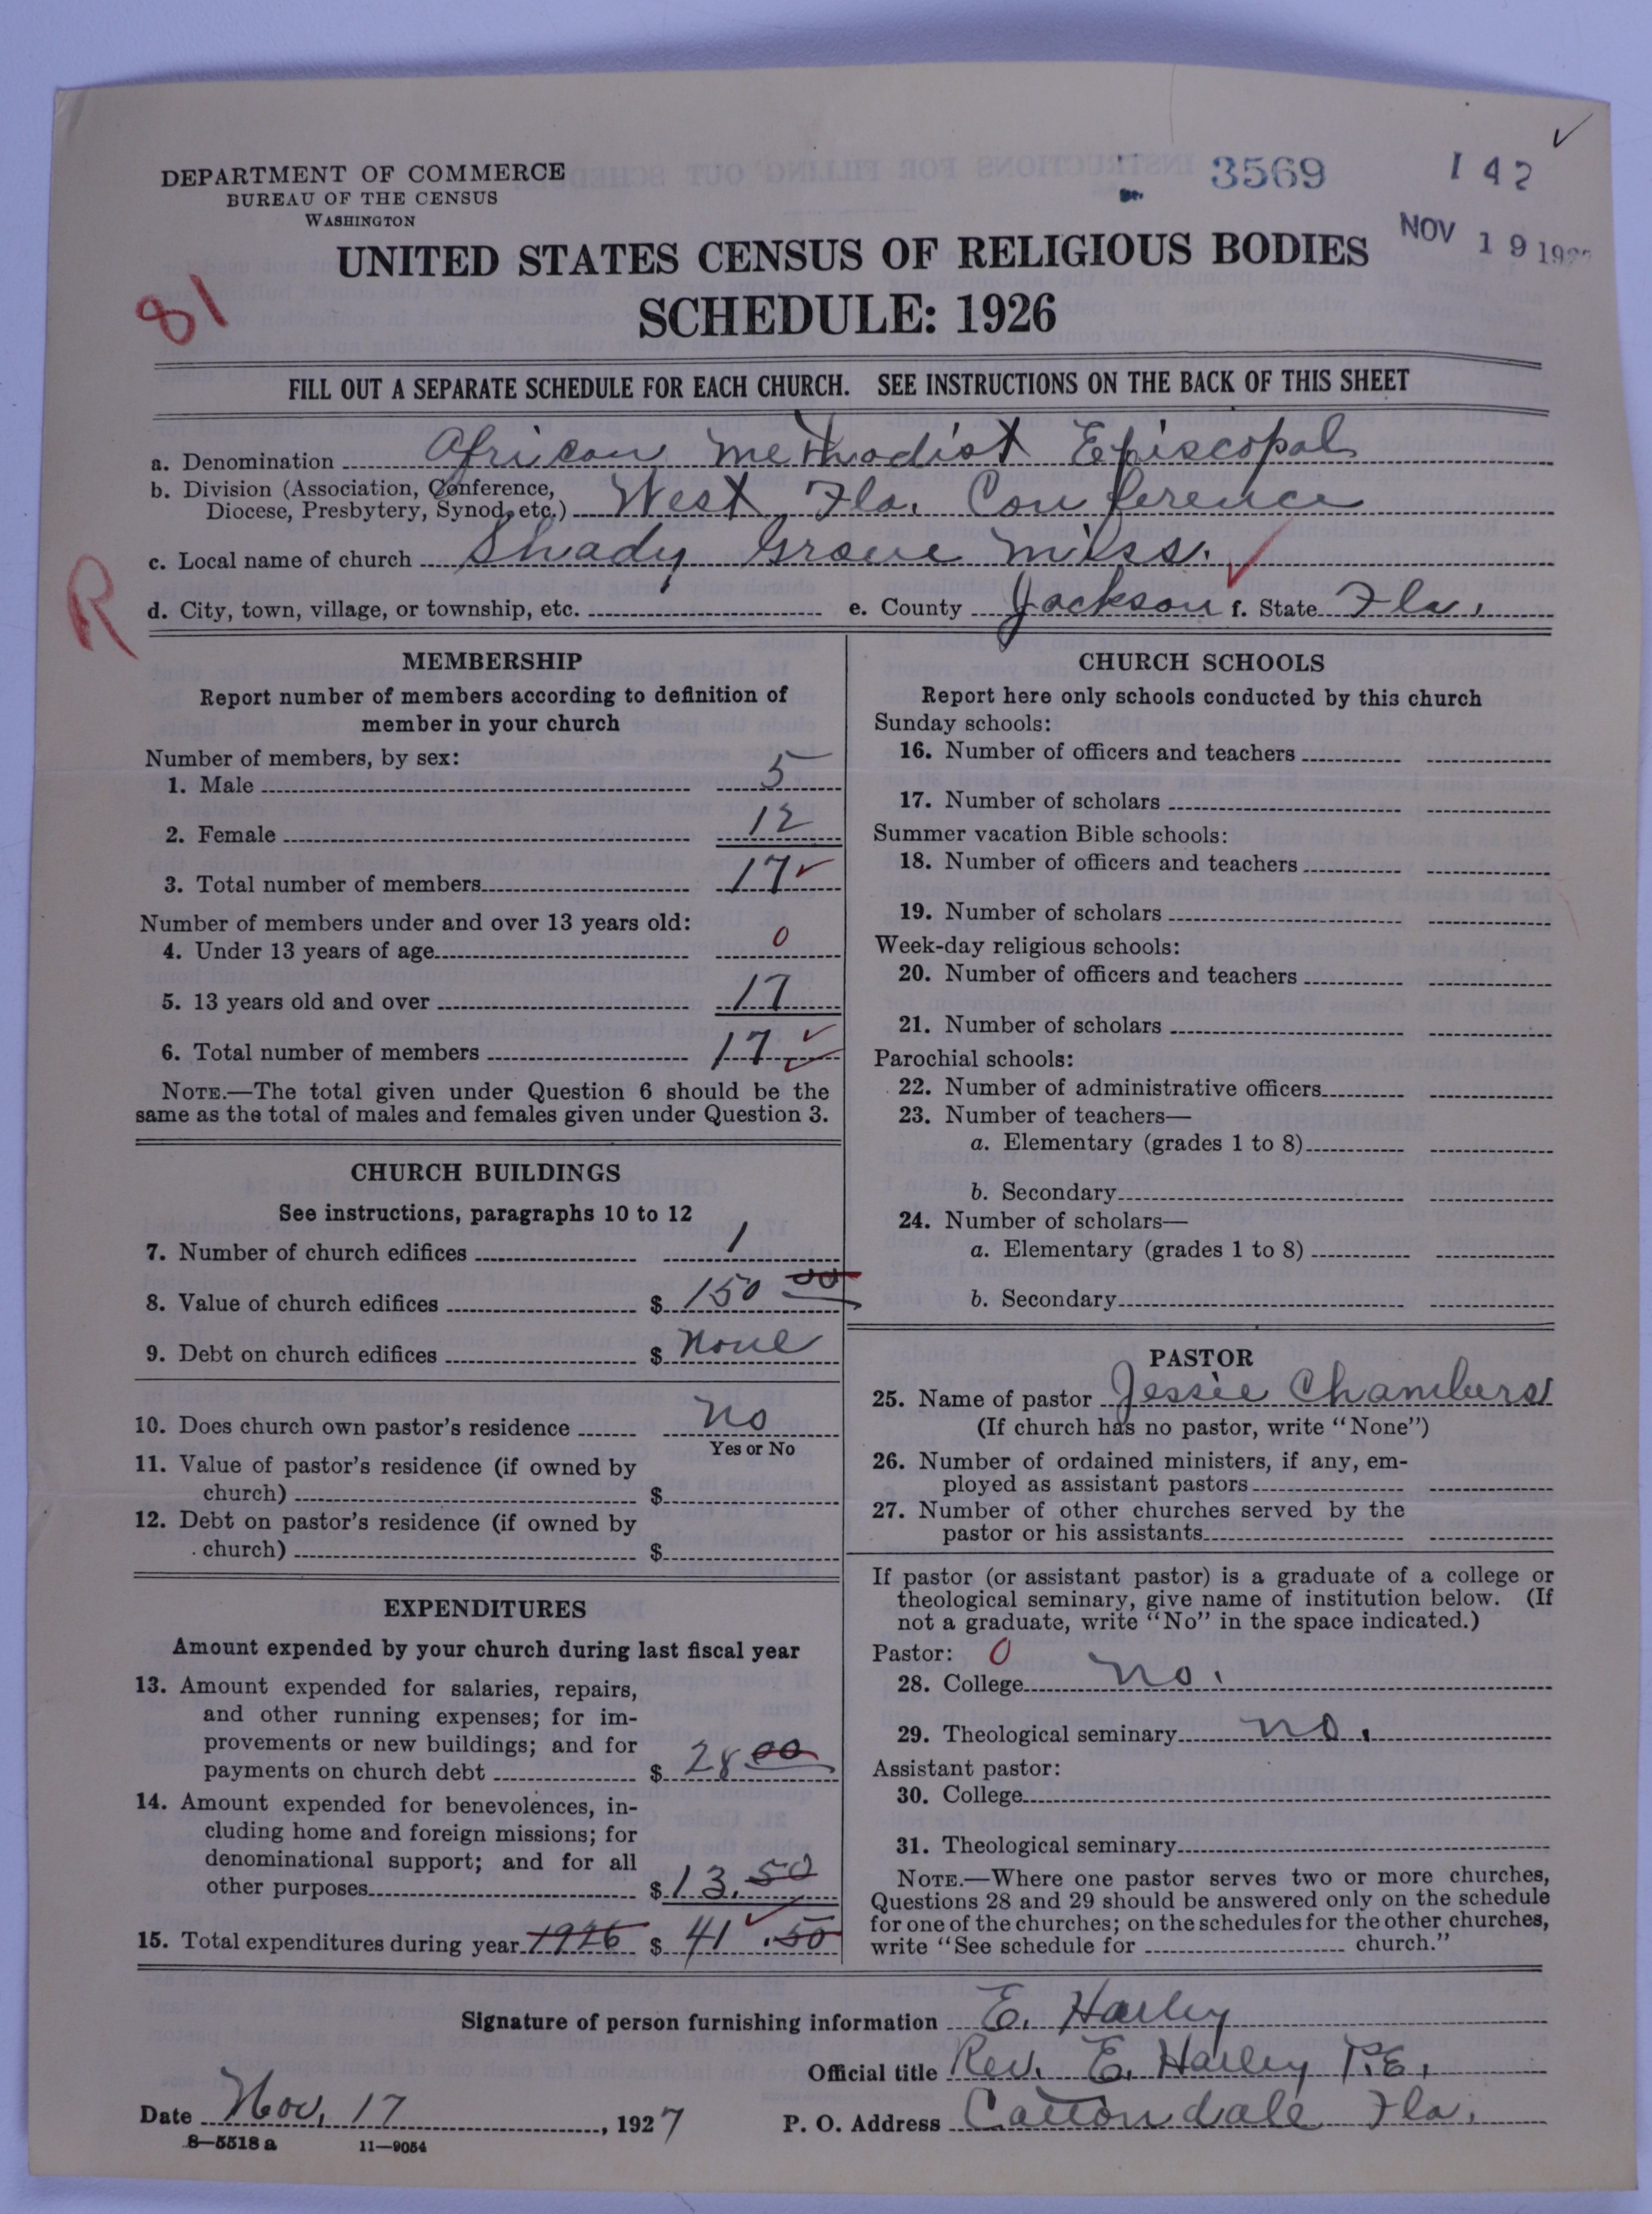 3569
I 42
NOV 19 192
DEPARTMENT OF COMMERCE
BUREAU OF THE CENSUS
WASHINGTON
UNITED STATES CENSUS OF RELIGIOUS BODIES
SCHEDULE: 1926
81
FILL OUT A SEPARATE SCHEDULE FOR EACH CHURCH. SEE INSTRUCTIONS ON THE BACK OF THIS SHEET
a. Denomination African Methodist Episcopal
b. Division (Association, Conference,
Diocese, Presbytery, Synod, etc.) West Fla. Conference
c. Local name of church Shady Grove Miss.
R
d. City, town, village, or township, etc. e. County Jackson f. State Fla.
MEMBERSHIP
Report number of members according to definition of
member in your church
Number of members, by sex:
1. Male 5
2. Female 12
3. Total number of members 17
Number of members under and over 13 years old:
4. Under 13 years of age 0
5. 13 years old and over 17
6. Total number of members 17
NOTE.—The total given under Question 6 should be the
same as the total of males and females given under Question 3.
CHURCH BUILDINGS
See instructions, paragraphs 10 to 12
7. Number of church edifices 1
8. Value of church edifices $ 150 00
9. Debt on church edifices $ None
10. Does church own pastor's residence No
Yes or No
11. Value of pastor's residence (if owned by
church) $
12. Debt on pastor's residence (if owned by
church) $
EXPENDITURES
Amount expended by your church during last fiscal year
13. Amount expended for salaries, repairs,
and other running expenses; for im-
provements or new buildings; and for
payments on church debt $ 28 00
14. Amount expended for benevolences, in-
cluding home and foreign missions; for
denominational support; and for all
other purposes $ 13.50
15. Total expenditures during year 1926 $ 41.50
CHURCH SCHOOLS
Report here only schools conducted by this church
Sunday schools:
16. Number of officers and teachers
17. Number of scholars
Summer vacation Bible schools:
18. Number of officers and teachers
19. Number of scholars
Week-day religious schools:
20. Number of officers and teachers
21. Number of scholars
Parochial schools:
22. Number of administrative officers
23. Number of teachers—
a. Elementary (grades 1 to 8)
b. Secondary
24. Number of scholars—
a. Elementary (grades 1 to 8)
b. Secondary
PASTOR
25. Name of pastor Jessie Chambers
(If church has no pastor, write "None")
26. Number of ordained ministers, if any, em-
ployed as assistant pastors
27. Number of other churches served by the
pastor or his assistants
If pastor (or assistant pastor) is a graduate of a college or
theological seminary, give name of institution below. (If
not a graduate, write "No" in the space indicated.)
Pastor: 0
28. College No.
29. Theological seminary No.
Assistant pastor:
30. College
31. Theological seminary
NOTE.—Where one pastor serves two or more churches,
Questions 28 and 29 should be answered only on the schedule
for one of the churches; on the schedules for the other churches,
write "See schedule for church."
Signature of person furnishing information E. Harley
Official title Rev. E. Harley P.E.
Date Nov. 17, 1927 P. O. Address Cottondale Fla.
8—5518 a 11—9054